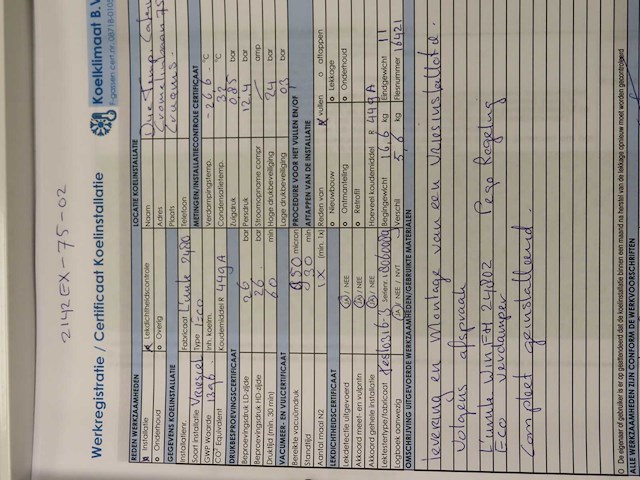 2142EX-75-02
Werkregistratie / Certificaat Koelinstallatie
Koelklimaat B.V
F-gassen cert.nr. 08718-0105
REDEN WERKZAAMHEDEN
x Installatie x Lekdichtheidscontrole
o Onderhoud o Overig
GEGEVENS KOELINSTALLATIE
Installatienr. Fabricaat L'unite 2480
Soort installatie Vriescel Type Eco
GWP Waarde 1396 Inh. koelm.
CO² Equivalent Koudemiddel R 449A
DRUKBESPROEVINGSCERTIFICAAT
Beproevingsdruk LD-zijde 26 bar
Beproevingsdruk HD-zijde 36 bar
Druktijd (min. 30 min) 60 min
VACUMEER- EN VULCERTIFICAAT
Bereikte vacuümdruk 950 micron
Standtijd 30 min
Aantal maal N2 1x (min. 1x)
LEKDICHTHEIDSCERTIFICAAT
Lekdetectie uitgevoerd JA / NEE
Akkoord meet- en vulpntn JA / NEE
Akkoord gehele installatie JA / NEE
Lektestertype/fabricaat Testo 316-3 Serienr.
Logboek aanwezig JA / NEE / NVT
LOCATIE KOELINSTALLATIE
Naam Due Temp
Adres
Plaats
Telefoon
METINGEN/INSTALLATIECONTROLE CERTIFICAAT
Verdampingstemp. -26.6 °C
Condensatietemp. 32 °C
Zuigdruk 0.85 bar
Persdruk 12.4 bar
Stroomopname compr amp
Hoge drukbeveiliging 24 bar
Lage drukbeveiliging 03 bar
PROCEDURE VOOR HET VULLEN EN/OF
AFTAPPEN VAN DE INSTALLATIE
Reden van x vullen o aftappen
o Nieuwbouw o Lekkage
o Ontmanteling o Onderhoud
o Retrofit
Hoeveel koudemiddel R 449A
Begingewicht 16,6 kg Eindgewicht 11
Verschil 5,6 kg Flesnummer 16421
OMSCHRIJVING UITGEVOERDE WERKZAAMHEDEN/GEBRUIKTE MATERIALEN
levering en Montage van een vriesinstallatie.
Volgens afspraak
L'unite Win FH 2480Z Pego Regeling
Eco verdamper
Compleet geinstalleerd.
O De eigenaar of gebruiker is er op geattendeerd dat de koelinstallatie binnen een maand na herstel van de lekkage opnieuw moet worden gecontroleerd
ALLE WERKZAAMHEDEN ZIJN CONFORM DE WERKVOORSCHRIFTEN